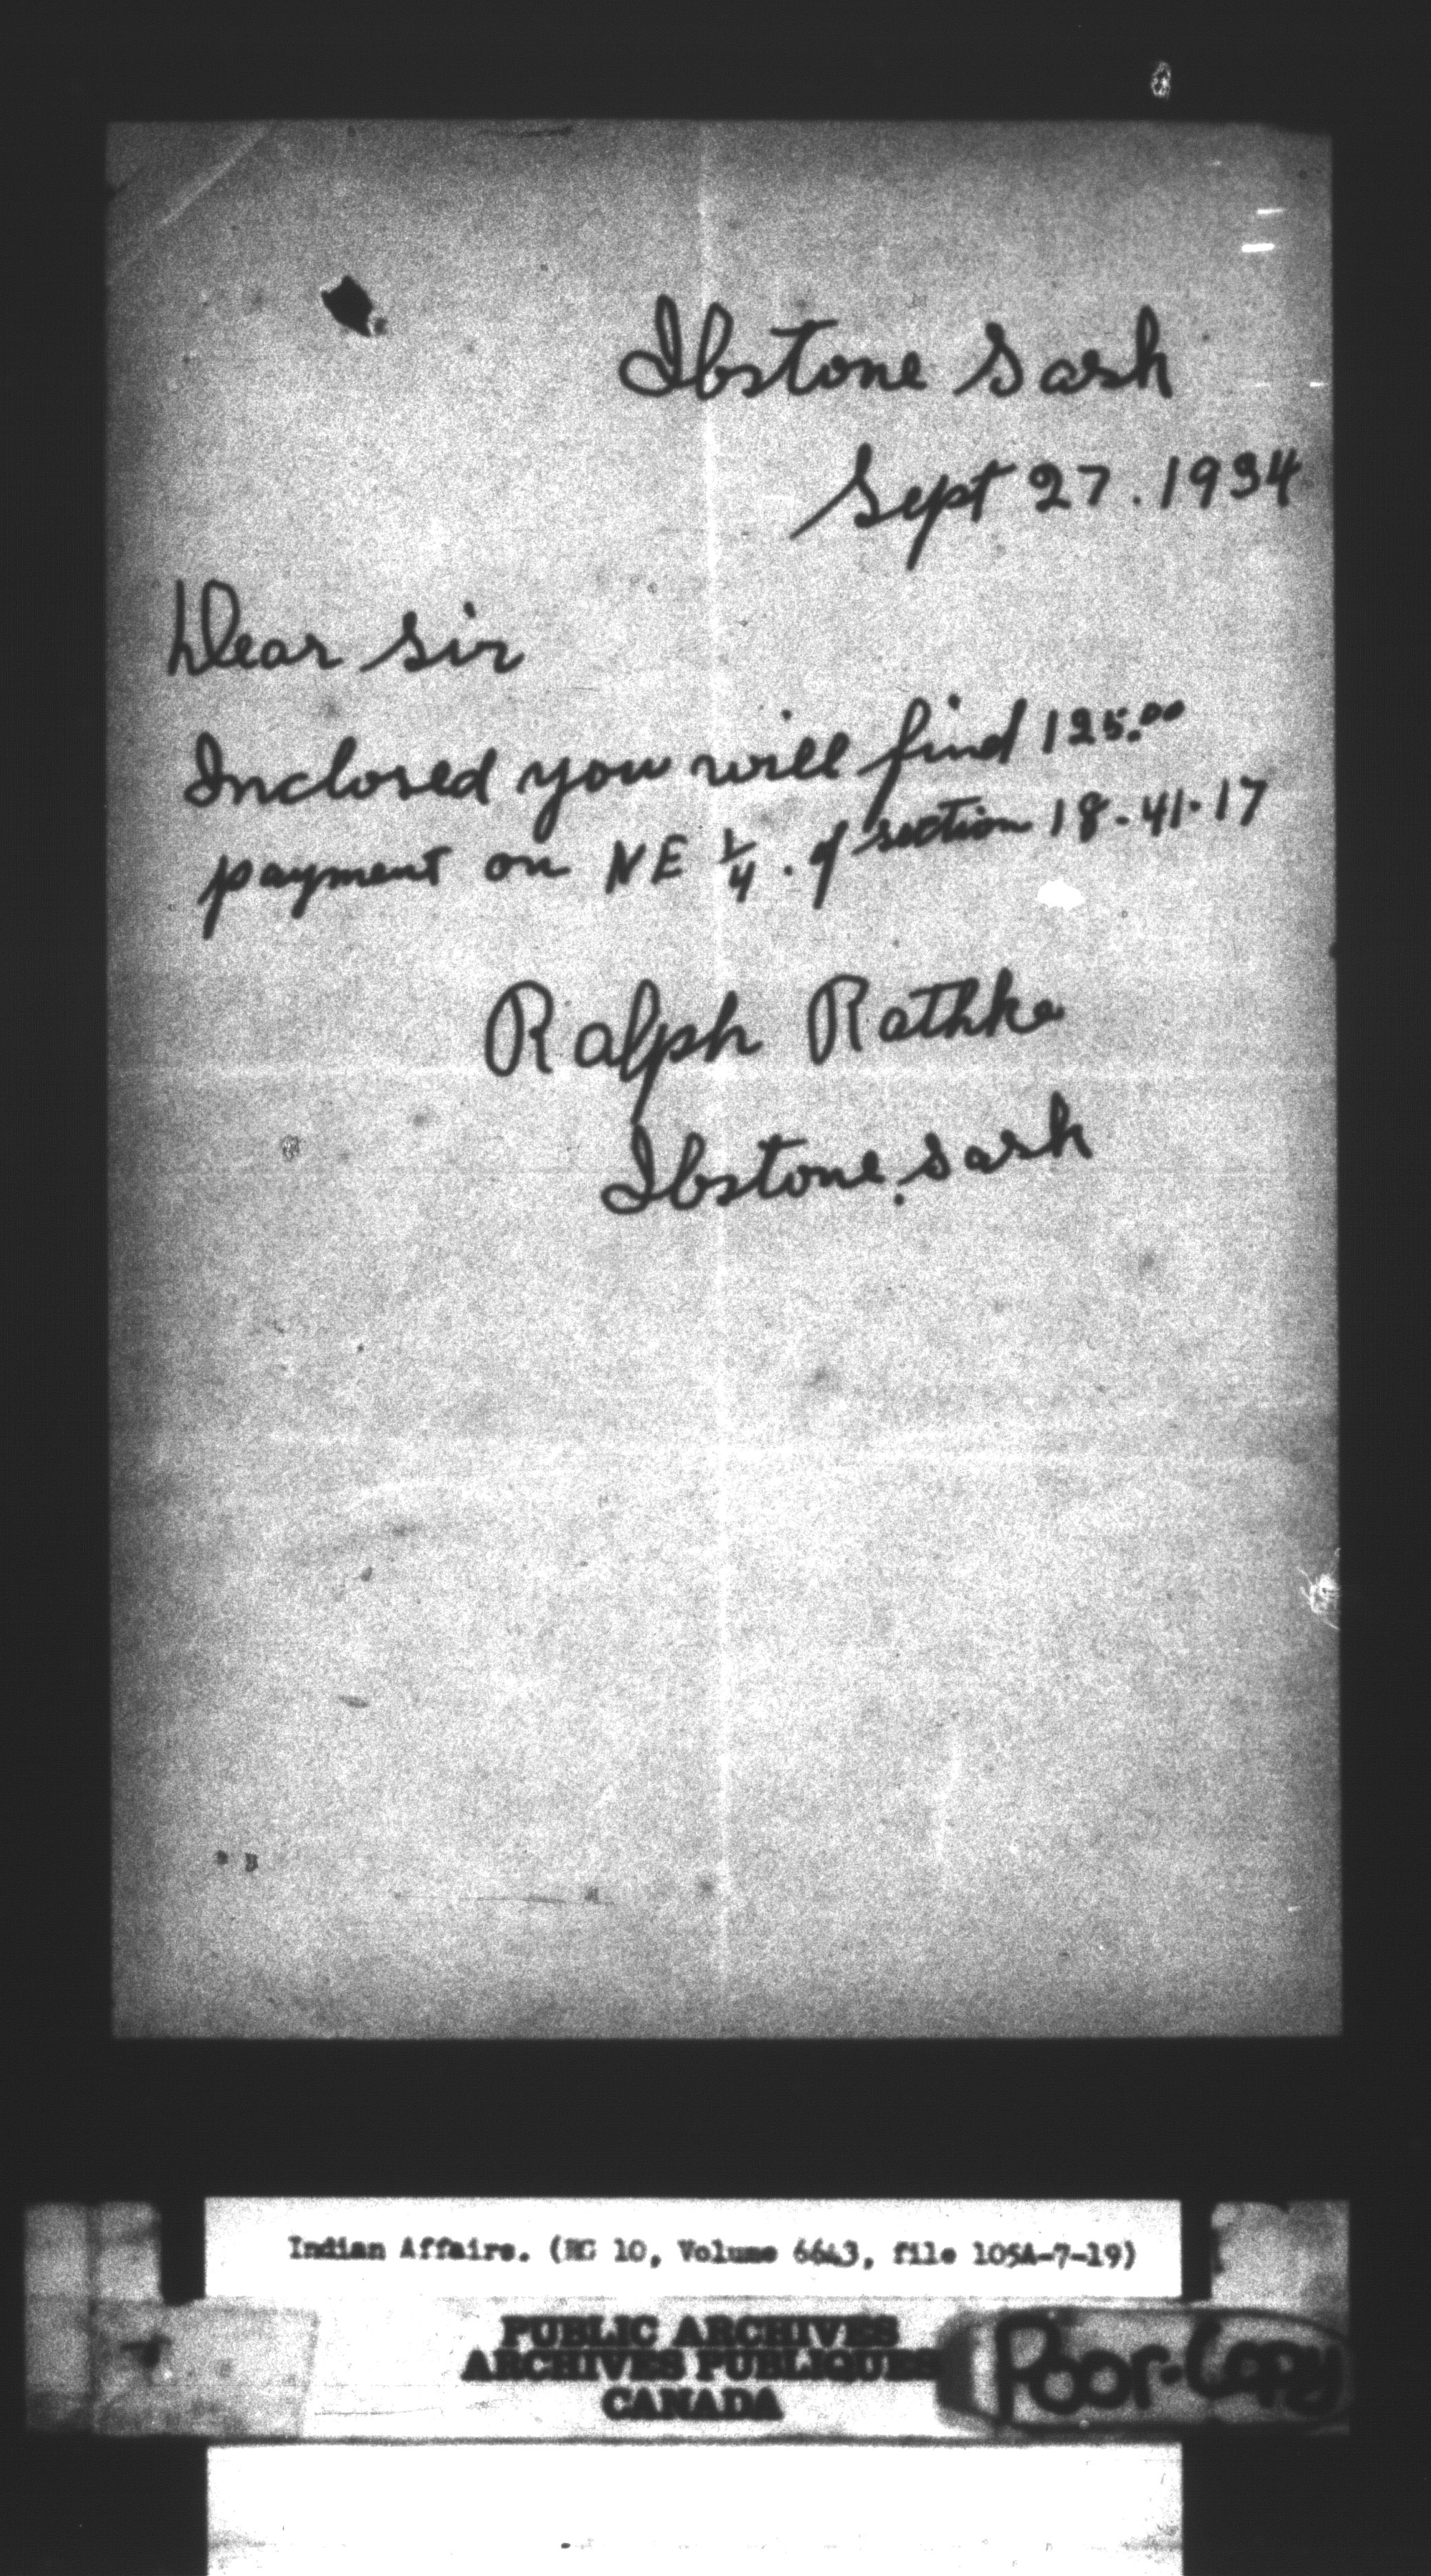 Ibstone Sask
Sept 27. 1934
Dear Sir
Inclosed you will find 125.00
payment on NE 1/4. of section 18-41-17
Ralph Rathke
Ibstone. Sask
Indian Affairs. (RG 10, Volume 6643, file 105A-7-19)
PUBLIC ARCHIVES
ARCHIVES PUBLIQUES
CANADA
Poor-Copy